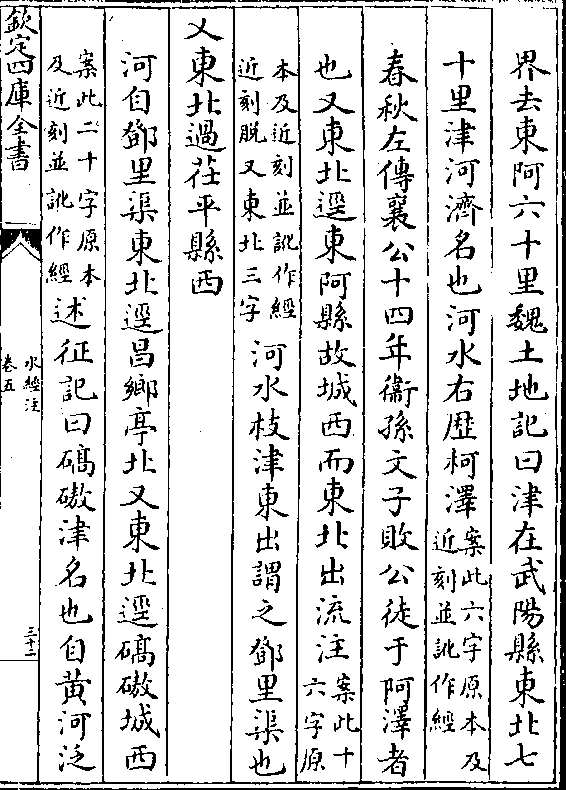 界去東阿六十里魏土地記曰津在武陽縣東北七
十里津河濟名也河水右歴柯澤案此六字原本及近刻並訛作經
春秋左傳襄公十四年衞孫文子敗公徒于阿澤者
也又東北逕東阿縣故城西而東北出流注案此十六字原
本及近刻並訛作經近刻脫又東北三字河水枝津東出謂之鄧里渠也
又東北過茌平縣西
河自鄧里渠東北逕昌鄉亭北又東北逕碻磝城西
案此二十字原本及近刻並訛作經述征記曰碻磝津名也自黄河泛
欽定四庫全書
水經注
卷五
三十二